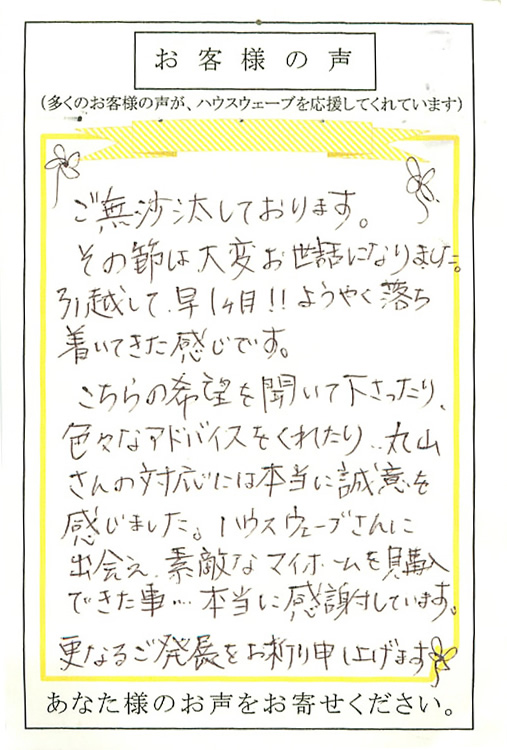 お客様の声
(多くのお客様の声が、ハウスウェーブを応援してくれています)
ご無沙汰しております。
その節は大変お世話になりました。
引越して、早1ヶ月!!ようやく落ち
着いてきた感じです。
こちらの希望を聞いて下さったり、
色々なアドバイスをくれたり、、丸山
さんの対応には本当に誠意を
感じました。ハウスウェーブさんに
出会え、素敵なマイホームを購入
できた事…本当に感謝しています。
更なるご発展をお祈り申し上げます
あなた様のお声をお寄せください。